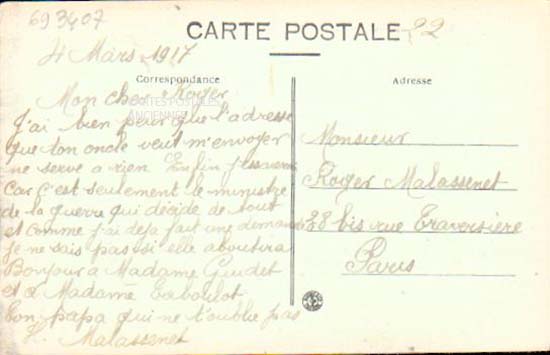 693407
CARTE POSTALE
22
4 Mars 1917
Correspondance
Adresse
Mon cher Roger
CARTES POSTALES
ANCIENNES
J'ai bien peur que l'adresse
que ton oncle veut m'envoyer
ne serve a rien Enfin
Car c'est seulement le ministre
de la guerre qui décide de tout
et comme j'ai deja fait une demande
je ne sais pas si elle aboutira
Bonjour à Madame Gudet
et à Madame Taboulot
ton papa qui ne t'oublie pas
Malassenet
Monsieur
Roger Malassenet
38 bis rue Traversière
Paris